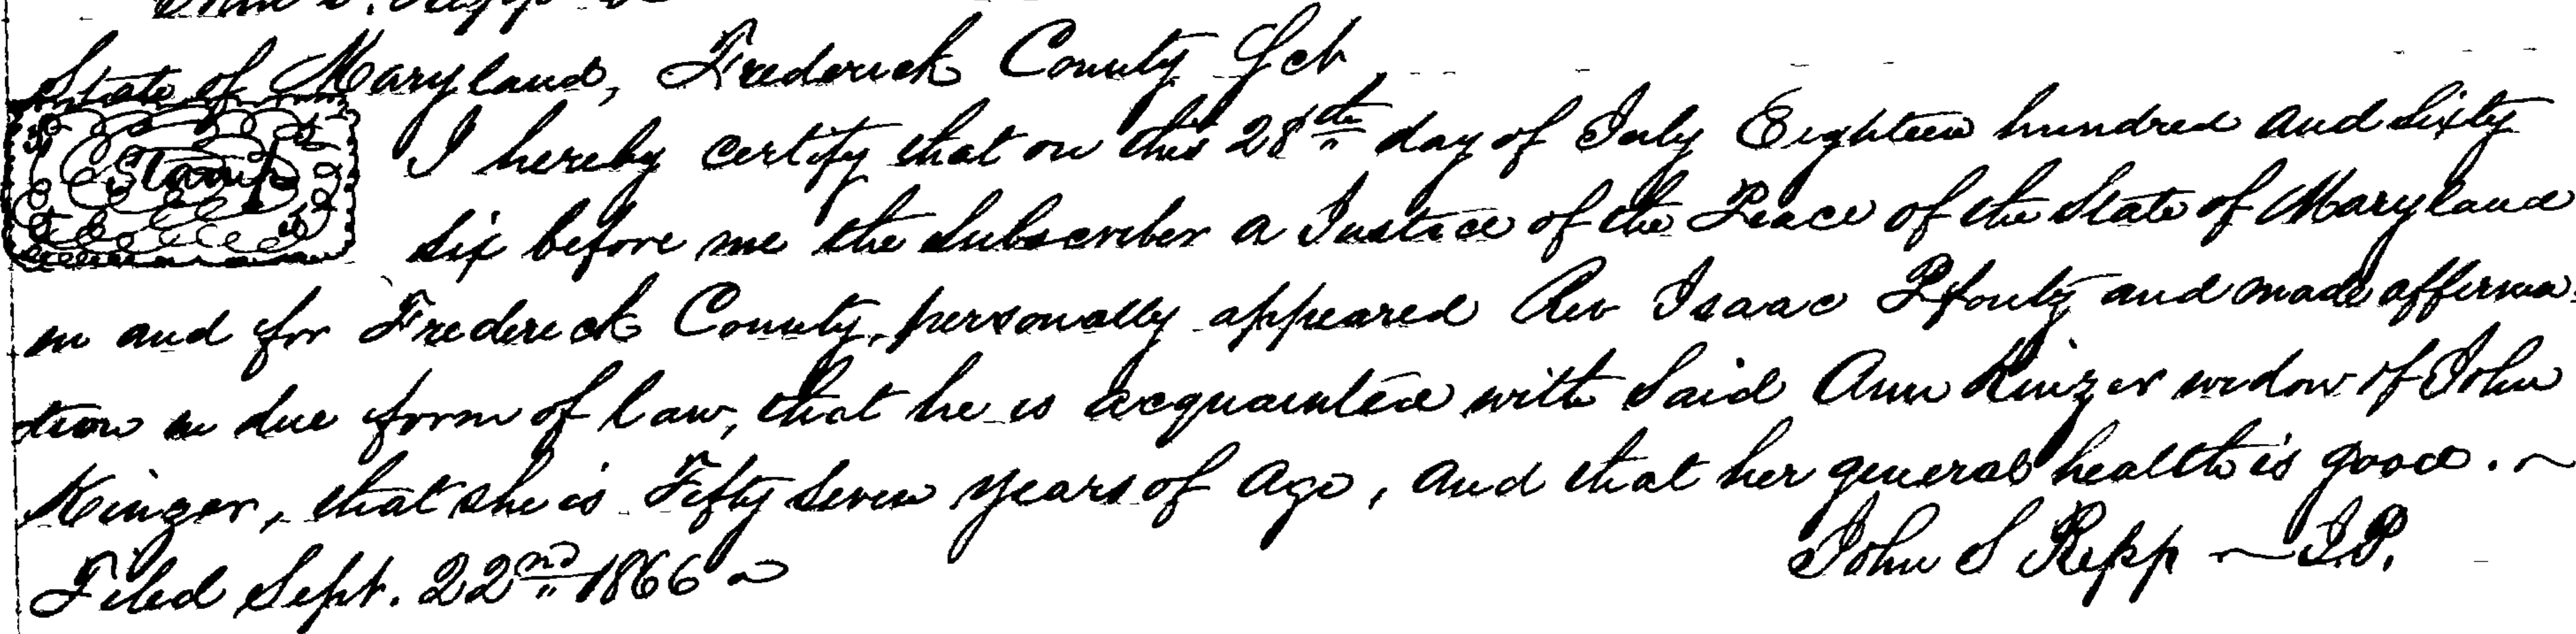 State of Maryland, Frederick County Sct
Stamp
I hereby certify that on this 28th day of July Eighteen hundred and Sixty
Six before me the Subscriber a Justice of the Peace of the State of Maryland
in and for Frederick County, personally appeared Rev Isaac Pfoutz and made affirma-
tion in due form of law, that he is acquainted with Said Ann Kinzer widow of John
Kinzer, that she is Fifty Seven years of age, and that her general health is good.
John S Repp J.P.
Filed Sept. 22nd 1866